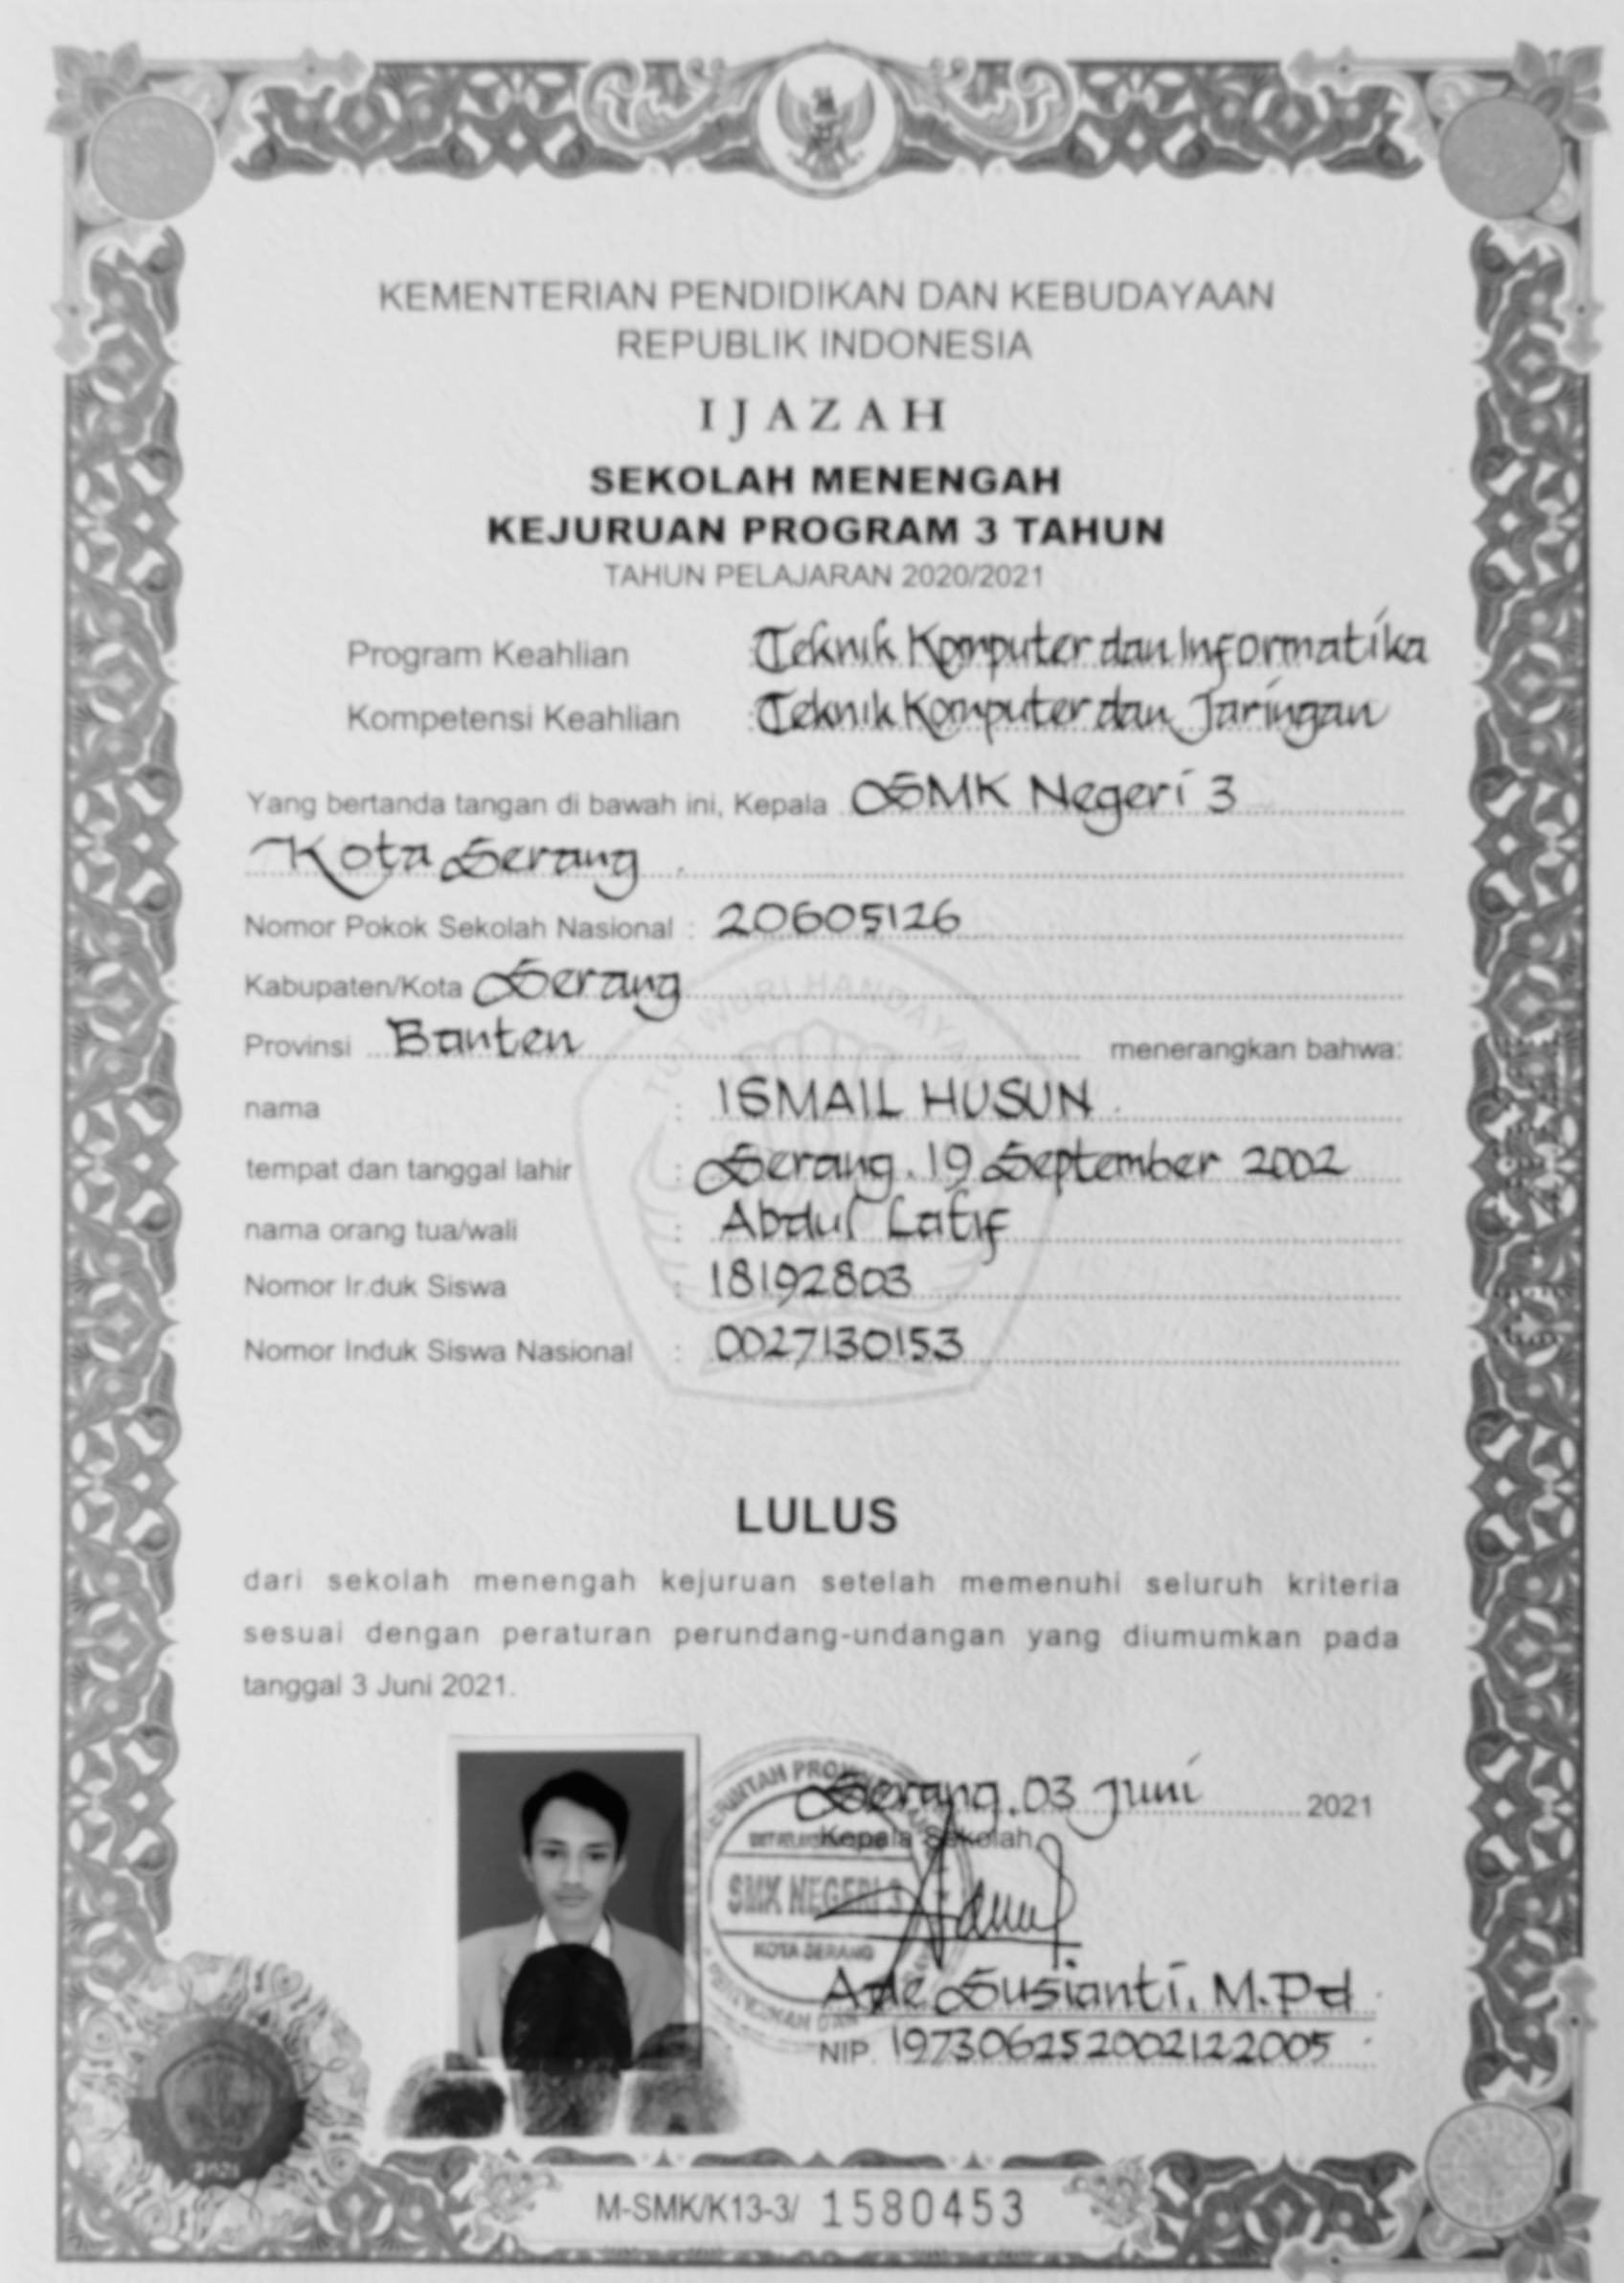 KEMENTERIAN PENDIDIKAN DAN KEBUDAYAAN
REPUBLIK INDONESIA
IJAZAH
SEKOLAH MENENGAH
KEJURUAN PROGRAM 3 TAHUN
TAHUN PELAJARAN 2020/2021
Program Keahlian : Teknik Komputer dan Informatika
Kompetensi Keahlian : Teknik Komputer dan Jaringan
Yang bertanda tangan di bawah ini, Kepala SMK Negeri 3
Kota Serang
Nomor Pokok Sekolah Nasional : 20605126
Kabupaten/Kota Serang
Provinsi Banten menerangkan bahwa:
nama : ISMAIL HUSUN
tempat dan tanggal lahir : Serang, 19 September 2002
nama orang tua/wali : Abdul Latif
Nomor Ir.duk Siswa : 18192803
Nomor Induk Siswa Nasional : 0027130153
TUT WURI HANDAYANI
LULUS
dari sekolah menengah kejuruan setelah memenuhi seluruh kriteria
sesuai dengan peraturan perundang-undangan yang diumumkan pada
tanggal 3 Juni 2021.
Serang, 03 Juni 2021
Kepala Sekolah,
SMK NEGERI 3
KOTA SERANG
Ade Susianti, M.Pd
NIP. 197306252002122005
2021
M-SMK/K13-3/ 1580453